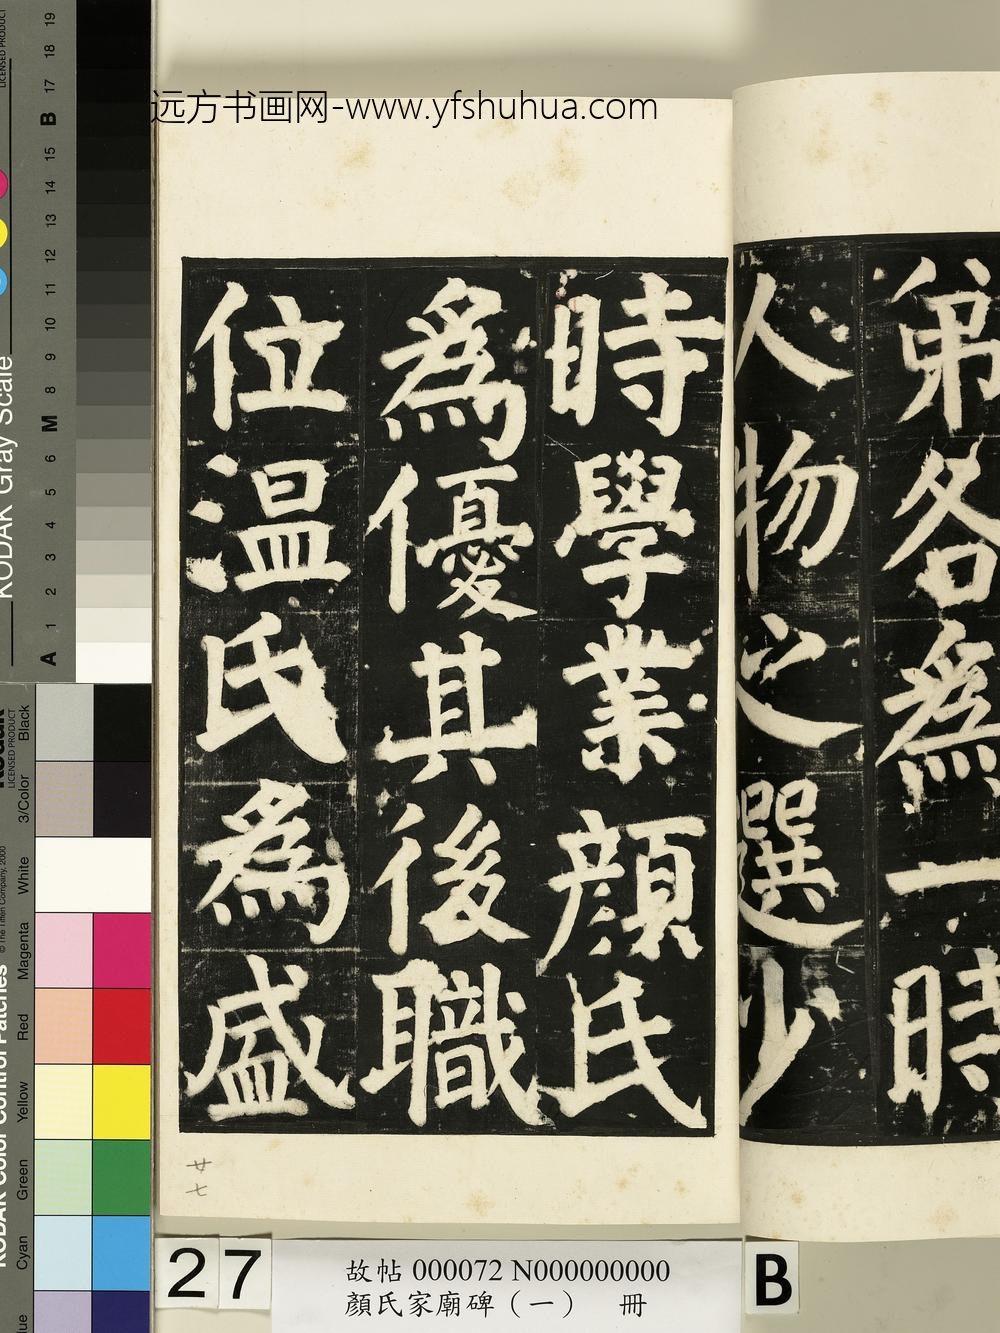 远方书画网-www.yfshuhua.com
弟各為一時
人物之選少
時學業顏氏
為優其後職
位温氏為盛
廿七
27
故帖 000072 N000000000
顏氏家廟碑（一） 冊
B
KODAK Gray Scale
LICENSED PRODUCT
A 1 2 3 4 5 6 M 8 9 10 11 12 13 14 15 B 17 18 19
KODAK Color Control Patches
© The Tiffen Company, 2000
Kodak
LICENSED PRODUCT
Cyan Green Yellow Red Magenta White 3/Color Black